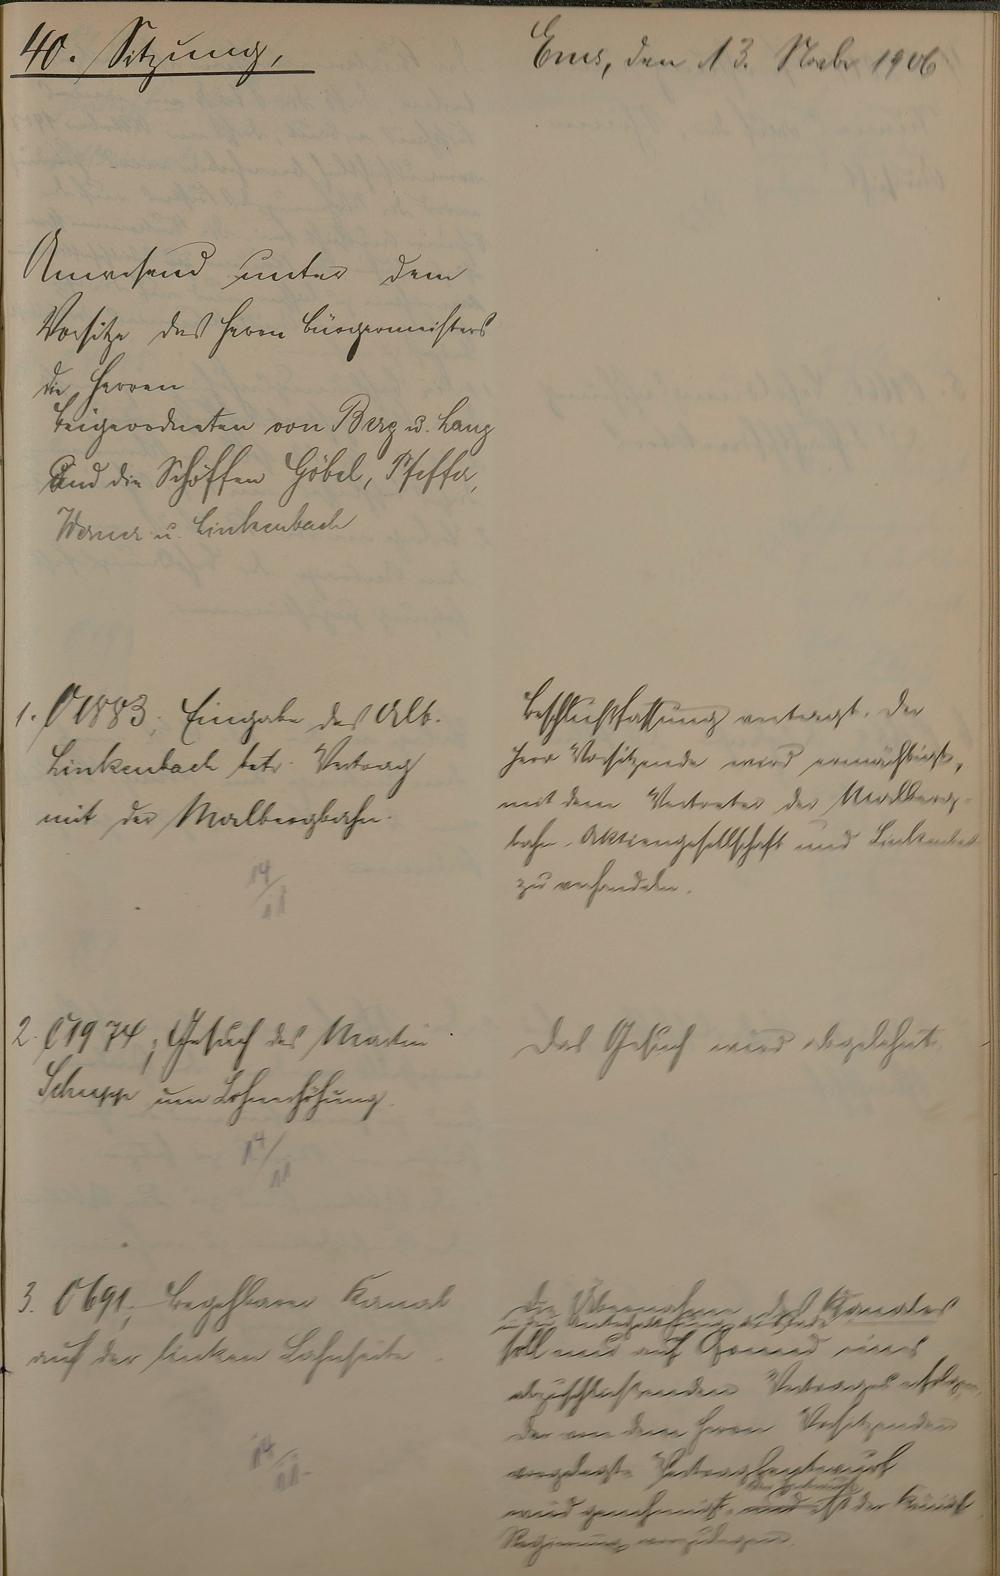 40. Sitzung,
Ems, den 13. Novbr 1906
Anwesend unter dem
Vorsitze des Herrn Bürgermeisters
die Herren
Beigeordneten von Berg u. Lang
und die Schöffen Göbel, Pfeffer,
Werner u. Linkenbach
1. O 1883, Eingabe des Alb.
Linkenbach betr. Vertrag
mit der Malbergbahn.
14/11
Beschlußfassung vertagt. Der
Herr Vorsitzende wird ermächtigt,
mit dem Vertreter der Malberg-
bahn-Aktiengesellschaft und Linkenbach
zu verhandeln.
2. O 1974, Gesuch des Martin
Schupp um Lohnerhöhung.
14/11
Das Gesuch wird abgelehnt.
3. O 691, Begehbarer Kanal
auf der linken Lahnseite.
14/11
Die Übernahme des Kanales
soll nur auf Grund eines
abzuschließenden Vertrages erfolgen.
Der von dem Herrn Vorsitzenden
vorgelegte Vertragsentwurf
wird genehmigt, und ist der Königl
Regierung vorzulegen.